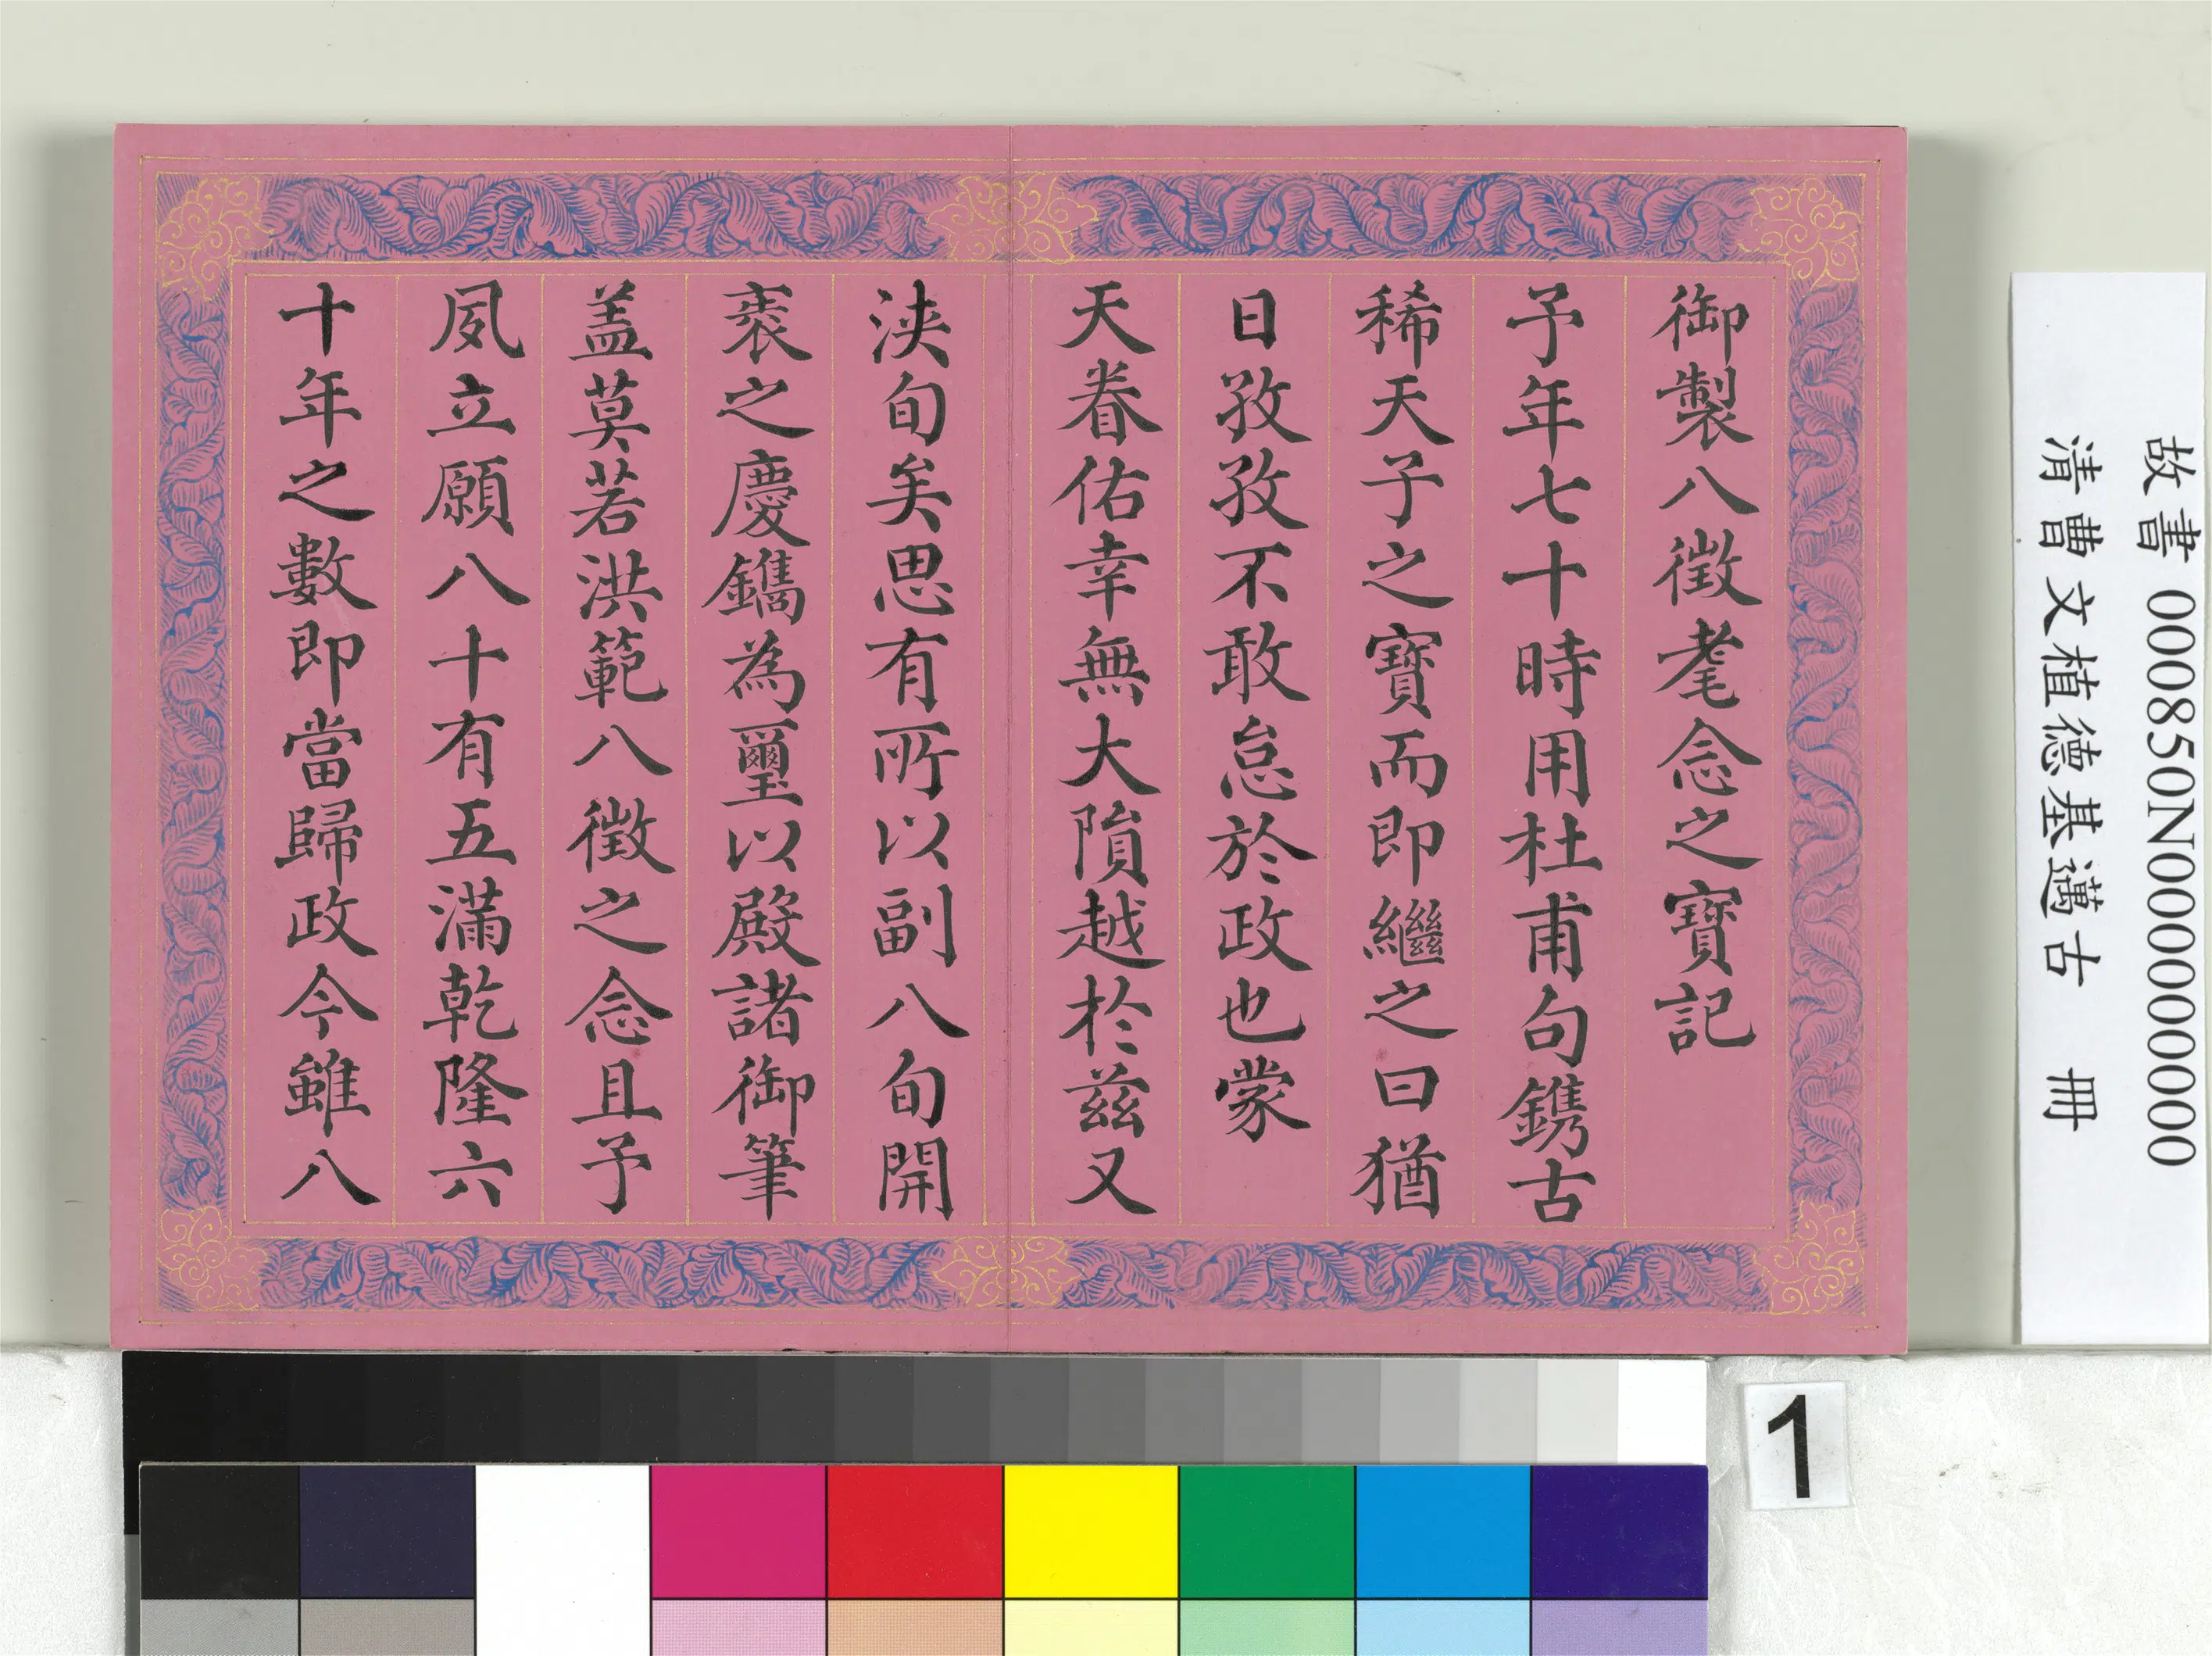 御製八徵耄念之寶記
予年七十時用杜甫句鐫古
稀天子之寶而即繼之曰猶
日孜孜不敢怠於政也蒙
天眷佑幸無大隕越於茲又
浹旬矣思有所以副八旬開
袠之慶鐫為璽以殿諸御筆
蓋莫若洪範八徵之念且予
夙立願八十有五滿乾隆六
十年之數即當歸政今雖八
故書 000850N000000000
清曹文植德基邁古 冊
1